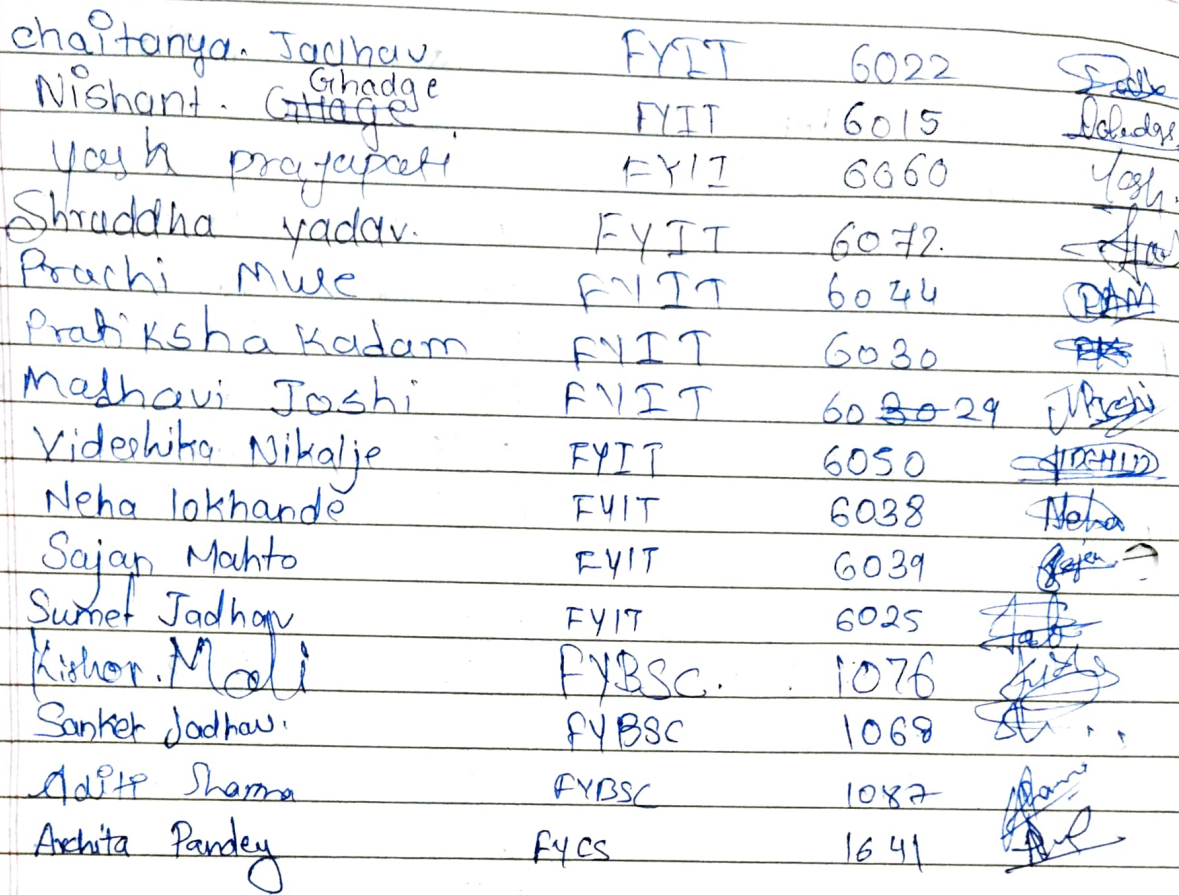 chaitanya. Jadhav FYIT 6022
Nishant. Ghadge FYIT 6015
Yash prajapati FYIT 6060 Yash.
Shraddha yadav. FYIT 6072.
Prachi Mule FYIT 6044 PAM
Pratiksha Kadam FYIT 6030
Madhavi Joshi FYIT 60 30 29 MJoshi
Videshika Nikalje FYIT 6050
Neha lokhande FYIT 6038 Neha
Sajan Mahto FYIT 6039 Sajan
Sumet Jadhav FYIT 6025
Kishor. Mali FYBSC. 1076
Sanket Jadhav. FYBSC 1068
Aditi Sharma FYBSC 1087
Archita Pandey FYCS 1641